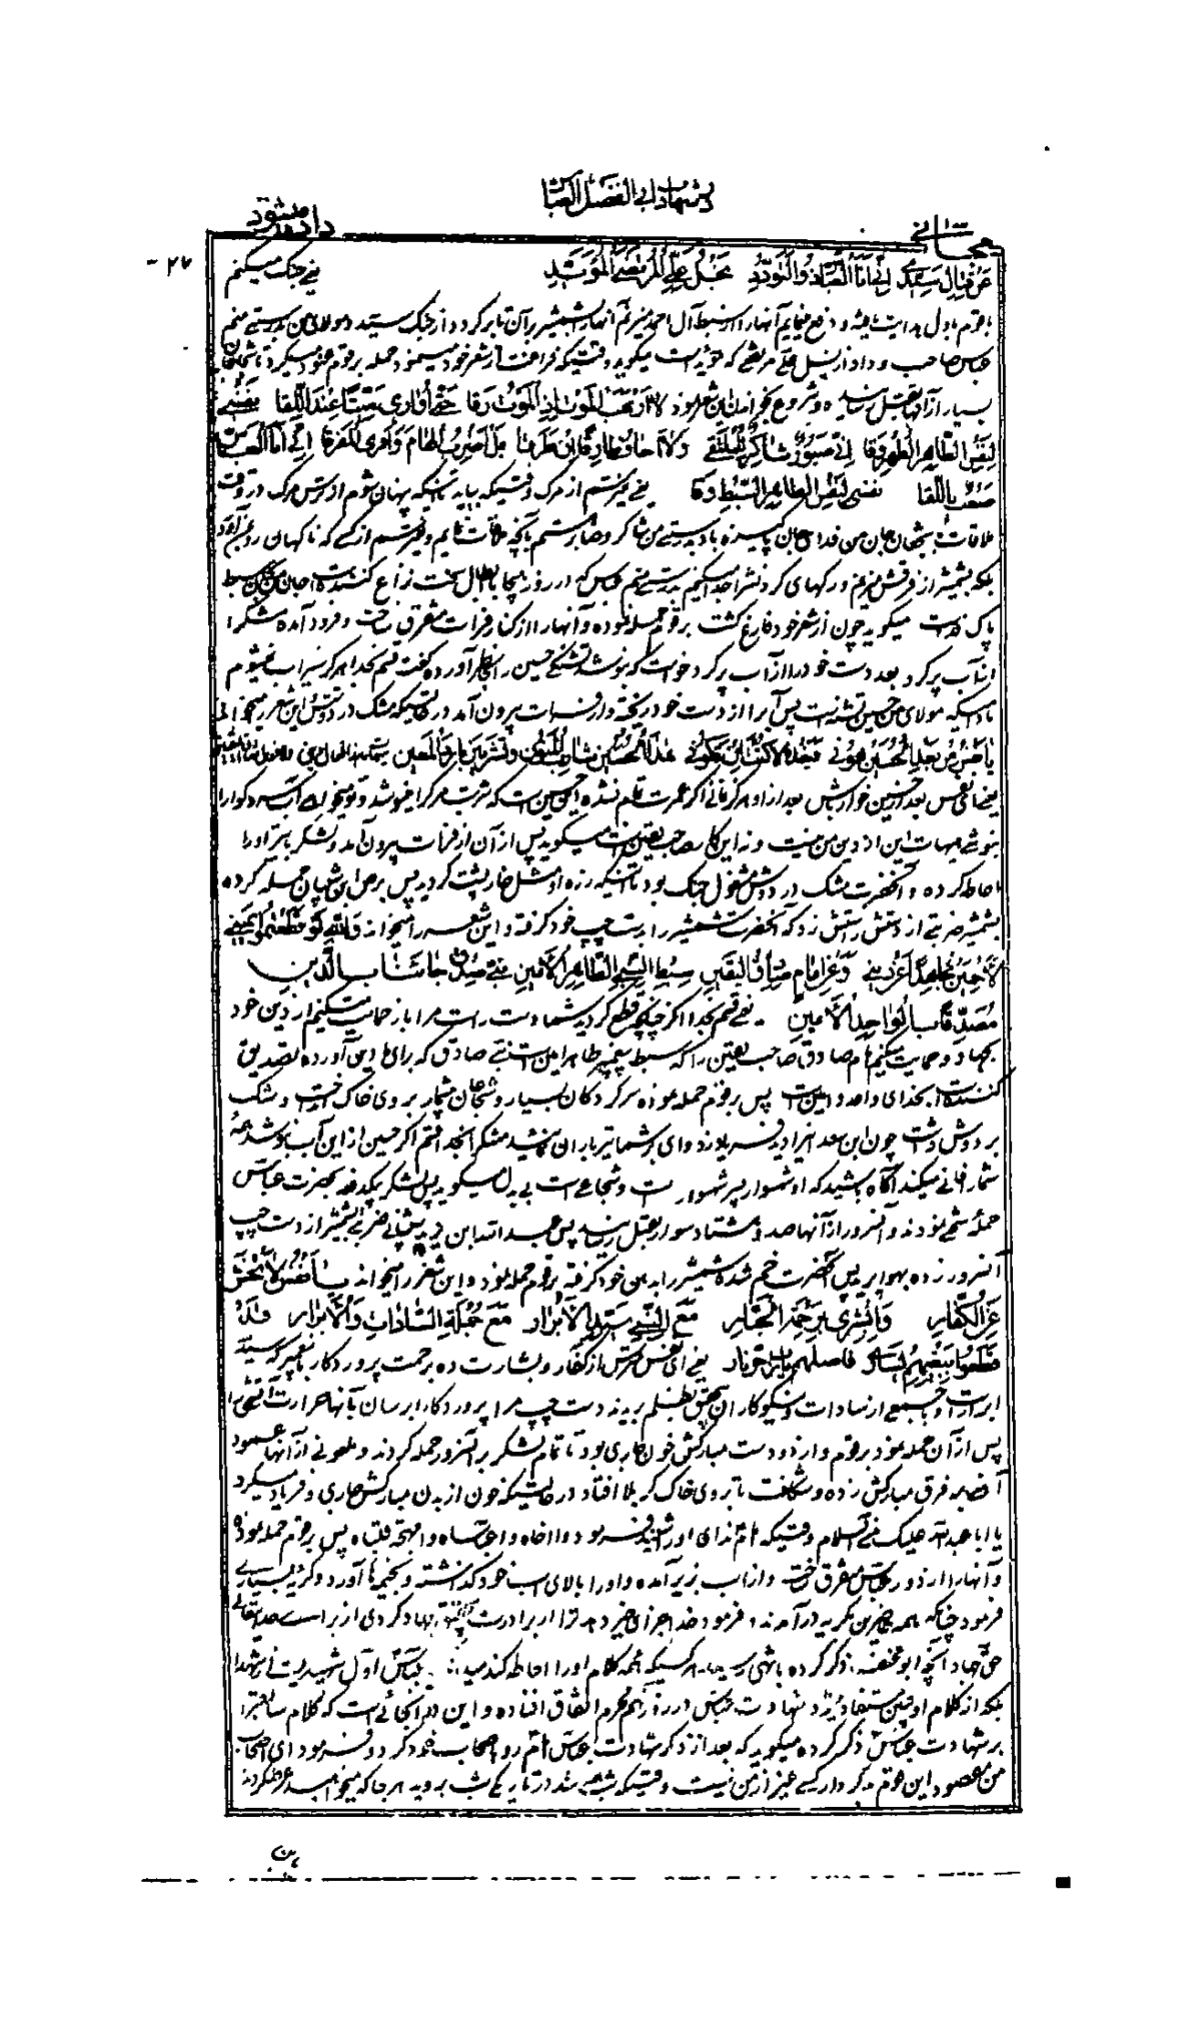 در شهادت ابی الفضل العباس
۲۷
عن قتال سیدی انی انا العباس ذو التودد نجل علی المرتضی المؤید یعنی جنگ میکنم
با قوم بادل هدایت یافته و دفع مینمایم آنها را از سبط آل احمد میزنم آنها را بشمشیر بران تا برگردد از جنگ سید و مولای من بدرستی منم
عباس صاحب وداد از نسل علی مرتضی که مؤید است میگوید وقتیکه فراغت از شعر خود نمود حمله بر قوم نمود
بسیار از آنها بقتل رسانیده و شروع بخواندن این شعر نمود لا ارهب الموت اذ الموت رقا حتی اواری میتا عند اللقا نفسی
لنفس الطاهر الطهر وقا انی صبور شاکر للملتقی ولا اخاف طارقا ان طرقا بل اضرب الهام وافری المفرقا انی انا العباس
صعب باللقا نفسی لنفس الطاهر السبط وقا یعنی نمیترسم از مرگ وقتیکه بیاید تا اینکه پنهان شوم از ترس مرگ در وقت
ملاقات شجعان جان من فدای جان پاکیزه باد بدرستی من شاکر و صابرستم بآنچه ملاقات نمایم و نمیترسم از کسی که ناگهان
بلکه بشمشیر از فرقش میزنم و رگهای گردنش را جدا میکنم بدرستی منم عباس که در روز هیجا با ابطال سخت نزاع کننده است جان من سبط
پاک است میگوید چون از شعر خود فارغ گشت بر قوم حمله نموده و آنها را از کنار فرات متفرق ساخت و فرود آمده مشک را
از آب پر کرد بعد دست خود را از آب پر کرد خواست که بنوشد تشنگی حسین را بخاطر آورده گفت قسم بخدا هرگز سیراب نمیشوم
مادامیکه مولای من حسین تشنه است پس آب را از دست خود ریخته و از فرات بیرون آمد در حالتیکه مشک در دوشش این شعر را میخواند
یا نفس من بعد الحسین هونی فبعده لا کنت ان تکونی هذا الحسین شارب المنون وتشربین بارد المعین
یعنی ای نفس بعد از حسین خوار باش بعد از او هرگز نمانی اگر عمرت تمام نشده این حسین است که شربت مرگ را مینوشد و تو میخواهی آب سرد گوارا
بنوشی هیهات این از دین من نیست و نه این کار صاحب یقین است میگوید پس از آن از فرات بیرون آمد و لشکر بهتر او را
احاطه کرده و آنحضرت مشک در دوش مشغول جنگ بود تا اینکه زره او مثل خارپشت گردید پس برص ابن شیبان حمله کرده
بشمشیر ضربتی از دستش راستش زد که آنحضرت شمشیر را بدست چپ خود گرفته و این شعر را میخواند والله لو قطعتموا یمینی
لاحمین جاهدا عن دینی وعن امام صادق الیقین سبط النبی الطاهر الامین نبی صدق جاءنا بالدین
مصدقا بالواحد الامین یعنی قسم بخدا اگر چنانچه قطع گردید شما دست راست مرا باز حمایت میکنم از دین خود
بجهاد و حمایت میکنم امام صادق صاحب یقین را که سبط پیغمبر طاهر امین است نبی صادق که برای ما دین آورده تصدیق
کننده است بخدای واحد و امین است پس بر قوم حمله نموده سرکردگان بسیار و شجاعان بیشمار بروی خاک انداخت و مشک
بر دوش داشت چون ابن سعد او را دید فریاد زد وای بر شما تیرباران کنید مشک را بخدا قسم اگر حسین از این آب بنوشد همه
شما را فانی میکند آگاه باشید که او شهسوار پسر شهسوار است و شجاعی است بی بدل میگوید پس لشکر یکدفعه بحضرت عباس
حمله سختی نمودند و آنسرور از آنها صد و هشتاد سوار بقتل رسانید پس عبد الله ابن یزید شیبانی ضربتی بشمشیر از دست چپ
آنسرور زده پس آنحضرت خم شده شمشیر را بدهن خود گرفته بر قوم حمله نمود و این شعر را میخواند یا نفس لا تخشی
عن الکفار وابشری برحمة الجبار مع النبی سید الابرار مع جملة السادات والابرار قد
قطعوا ببغیهم یساری فاصلهم یا رب حر نار یعنی ای نفس مترس از کفار و بشارت ده برحمت پروردگار با پیغمبر که سید
ابرار است و جمعی از سادات و نیکوکاران بتحقق بظلم بریدند دست چپ مرا پروردگارا برسان بآنها حرارت آتش را
پس از آن حمله نمود بر قوم و از دو دست مبارکش خون جاری بود تا تمام لشکر بر آنسرور حمله کردند و ملعونی از آنها عمود
آهن بر فرق مبارکش زده و شکافت تا بروی خاک کربلا افتاد در حالتیکه خون از بدن مبارکش جاری و فریاد میکرد
یا ابا عبد الله علیک منی السلام وقتیکه امام ندای او را شنید فرمود وا اخاه وا عباساه وا مهجة قلباه پس بر قوم حمله نمود
و آنها را از دور عباس متفرق ساخت و از اسب زیر آمده و او را بالای اسب خود گذاشته و بخیمه‌ها آورد و گریه بسیاری
فرمود چنانکه همه حاضرین بگریه درآمدند و فرمود خدا جزای خیر دهد ترا از برادرت جهاد کردی از برای خدایتعالی
حق جهاد آنچه ابو مخنف ذکر کرده بانتهی رسید هر کسیکه همه کلام او را احاطه کند میداند عباس اول شهید نیست از شهدا
بلکه از کلام او چنین مستفاد میگردد شهادت عباس در روز نهم محرم اتفاق افتاده و این در آنجائی است که کلام سابق را
بر شهادت عباس ذکر کرده میگوید که بعد از ذکر شهادت عباس امام رو باصحاب خود کرد و فرمود ای اصحاب
من مقصود این قوم نکردار کسی غیر از من نیست وقتیکه شب شد در تاریکی شب بروید هر جا که میخواهید عرض کردند